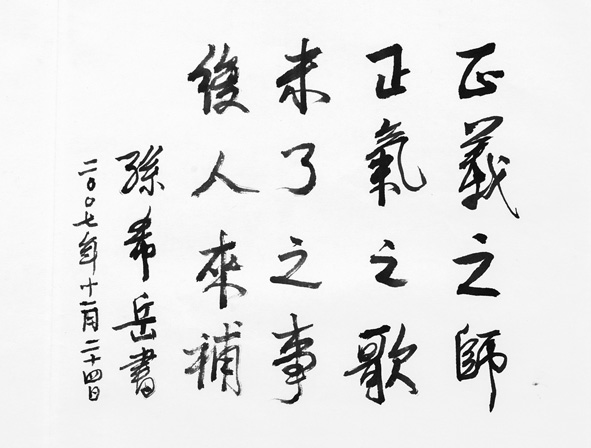 正義之師
正氣之歌
未了之事
後人來補
孫希岳書
二〇〇七年十一月二十四日